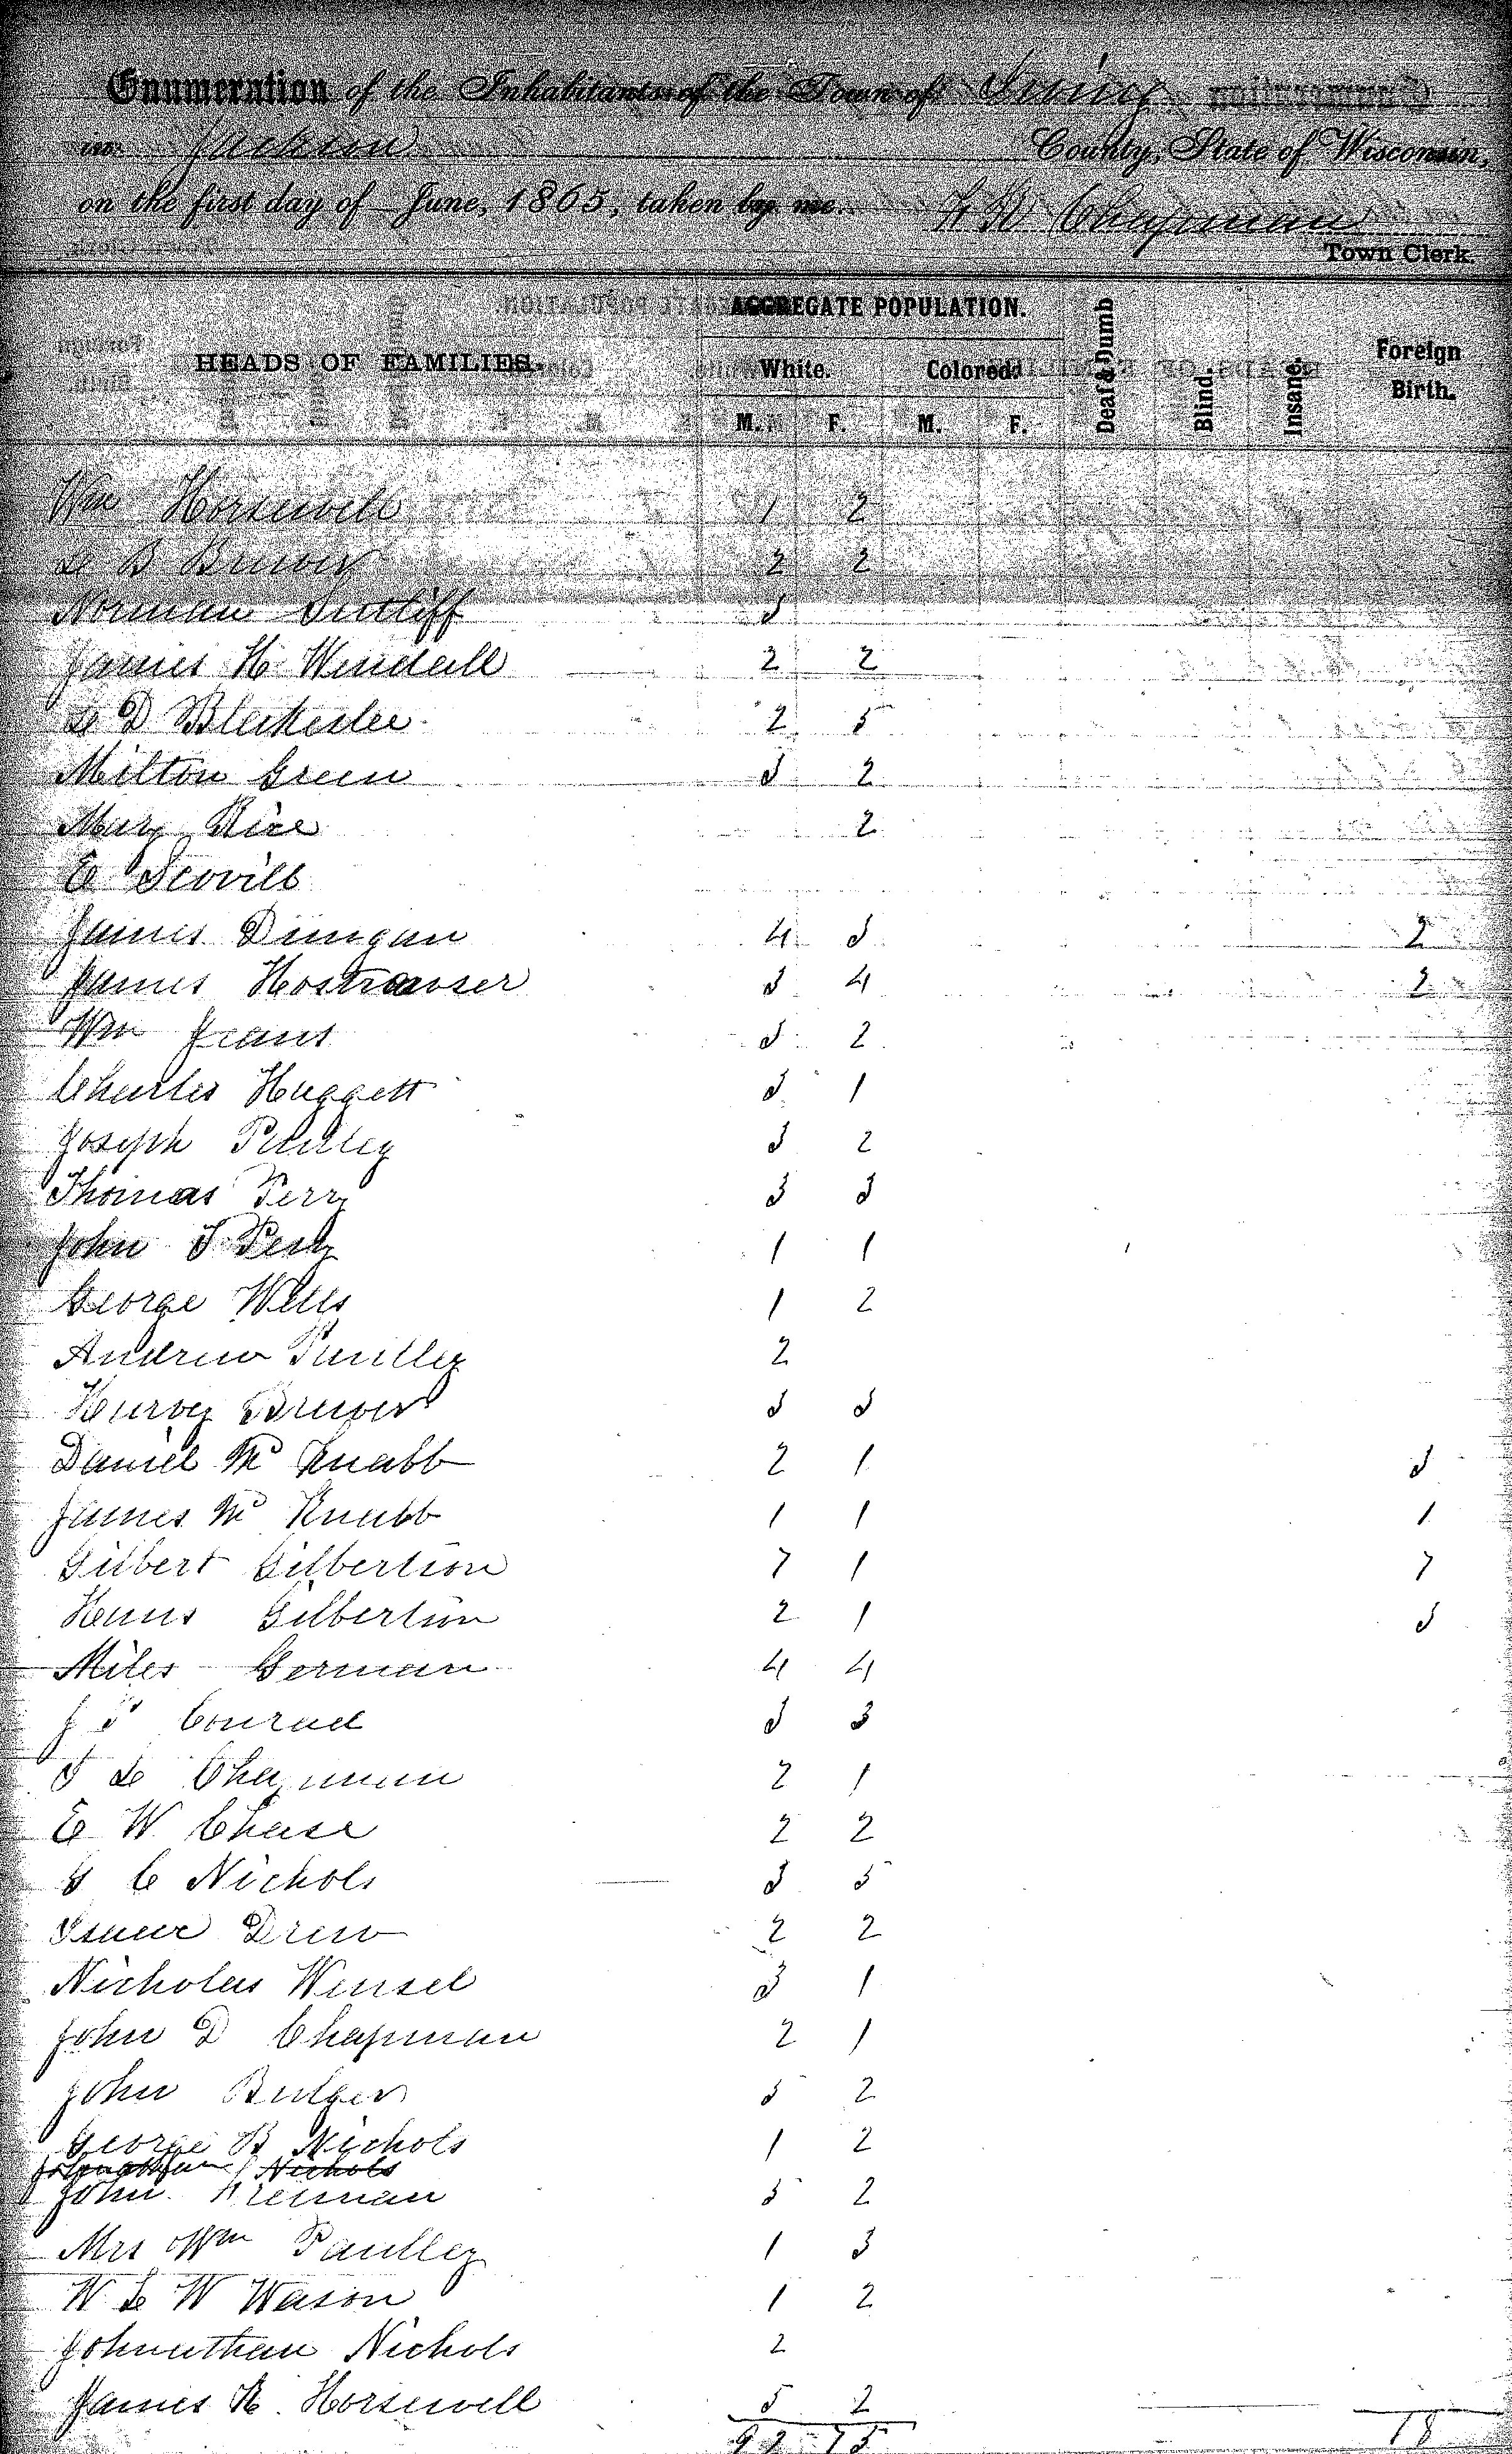 Enumeration of the Inhabitants of the Town of Irving
in Jackson County, State of Wisconsin,
on the first day of June, 1865, taken by me. Chapman
Town Clerk.
AGGREGATE POPULATION.
HEADS OF FAMILIES. White. Colored. Deaf & Dumb Blind. Insane. Foreign Birth.
M. F. M. F.
Wm Horswell 1 2
B Brewer 2 2
Norman Sutliff 3
James H Windall 2 2
L D Blakeslee 2 5
Milton Green 3 2
Mary Rice 2
E Scovill
James Dungan 4 3 2
James Hostrawser 3 4 2
Wm Jeans 3 2
Charles Huggett 3 1
Joseph Paulley 3 2
Thomas Perry 3 3
John S Perry 1 1
George Wells 1 2
Andrew Paulley 2
Harvey Brewer 3 3
Daniel Mc Knabb 2 1 3
James Mc Knabb 1 1 1
Gilbert Gilbertson 7 1 7
Hans Gilbertson 2 1 3
Miles German 4 4
J S Conrad 3 3
S L Chapman 2 1
E W Chase 2 2
G C Nichols 3 5
Isaac Drew 2 2
Nicholas Wensel 3 1
John D Chapman 2 1
John Bulger 5 2
George B Nichols 1 2
Johnathan Nichols
John 5 2
Mrs Wm Paulley 1 3
W L W Wason 1 2
Johnathan Nichols 2
James R. Horswell 5 2
92 75 18